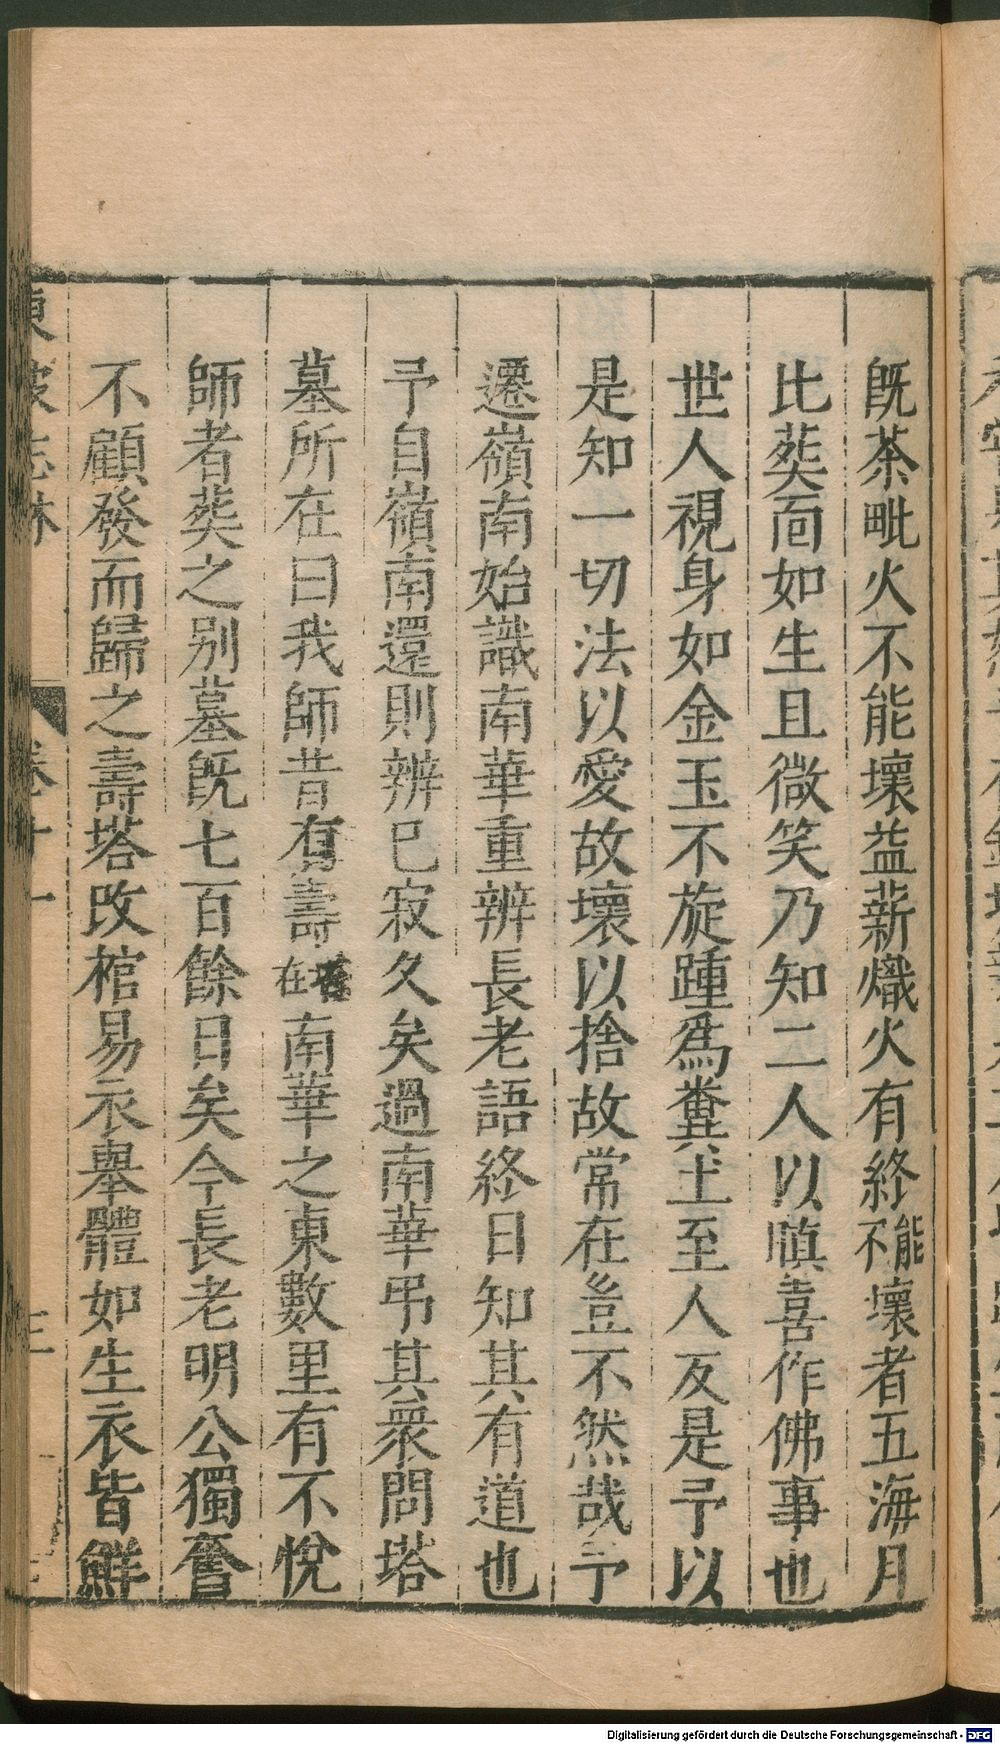 既荼毗火不能壞益薪熾火有終不能壞者五海月
比葬靣如生且微笑乃知二人以嗔喜作佛事也
世人視身如金玉不旋踵爲糞土至人反是予以
是知一切法以愛故壞以捨故常在豈不然哉予
遷嶺南始識南華重辨長老語終日知其有道也
予自嶺南還則辨已寂久矣過南華弔其衆問塔
墓所在曰我師昔有壽塔在南華之東數里有不悅
師者葬之别墓既七百餘日矣今長老明公獨奮
不顧發而歸之壽塔改棺易衣舉體如生衣皆鮮
東坡志林 卷十一 三
Digitalisierung gefördert durch die Deutsche Forschungsgemeinschaft - DFG